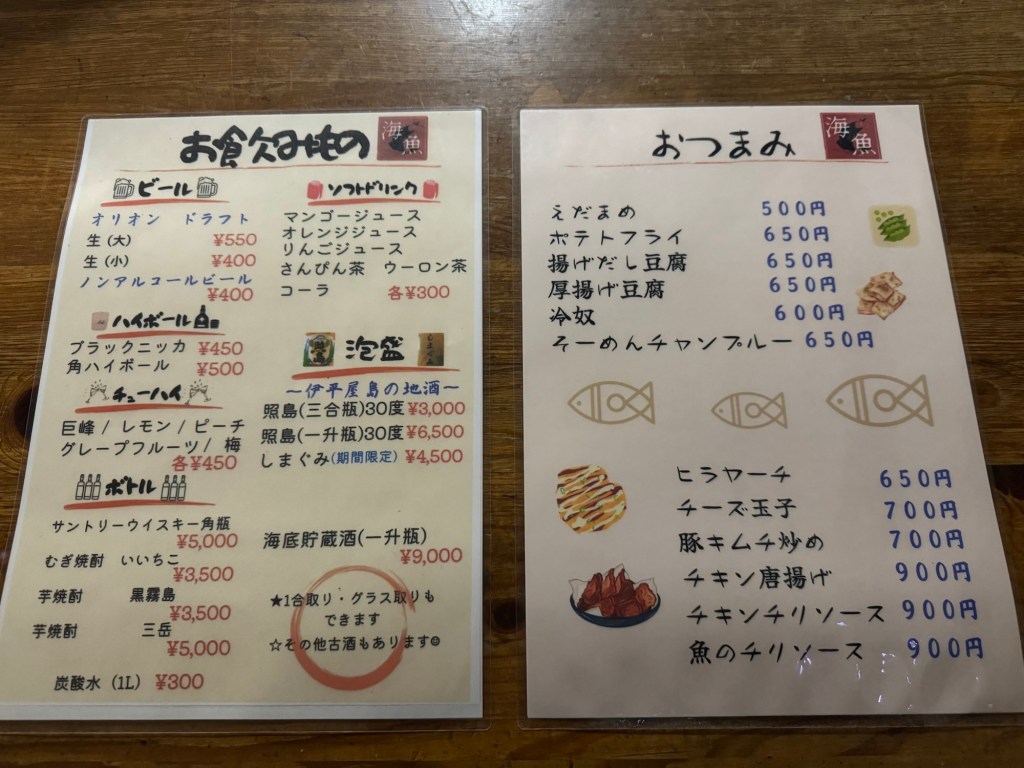 お飲み物
海魚
ビール
オリオン ドラフト
生(大) ¥550
生(小) ¥400
ノンアルコールビール
¥400
ハイボール
ブラックニッカ ¥450
角ハイボール ¥500
チューハイ
巨峰 / レモン / ピーチ
グレープフルーツ / 梅
各¥450
ボトル
サントリーウイスキー角瓶
¥5,000
むぎ焼酎 いいちこ
¥3,500
芋焼酎 黒霧島
¥3,500
芋焼酎 三岳
¥5,000
炭酸水 (1L) ¥300
ソフトドリンク
マンゴージュース
オレンジジュース
りんごジュース
さんぴん茶 ウーロン茶
コーラ 各¥300
泡盛
~伊平屋島の地酒~
照島(三合瓶)30度 ¥3,000
照島(一升瓶)30度 ¥6,500
しまぐみ(期間限定) ¥4,500
海底貯蔵酒(一升瓶)
¥9,000
★1合取り・グラス取りも
できます
☆その他古酒もあります☺
おつまみ
海魚
えだまめ 500円
ポテトフライ 650円
揚げだし豆腐 650円
厚揚げ豆腐 650円
冷奴 600円
そーめんチャンプルー 650円
ヒラヤーチ 650円
チーズ玉子 700円
豚キムチ炒め 700円
チキン唐揚げ 900円
チキンチリソース 900円
魚のチリソース 900円